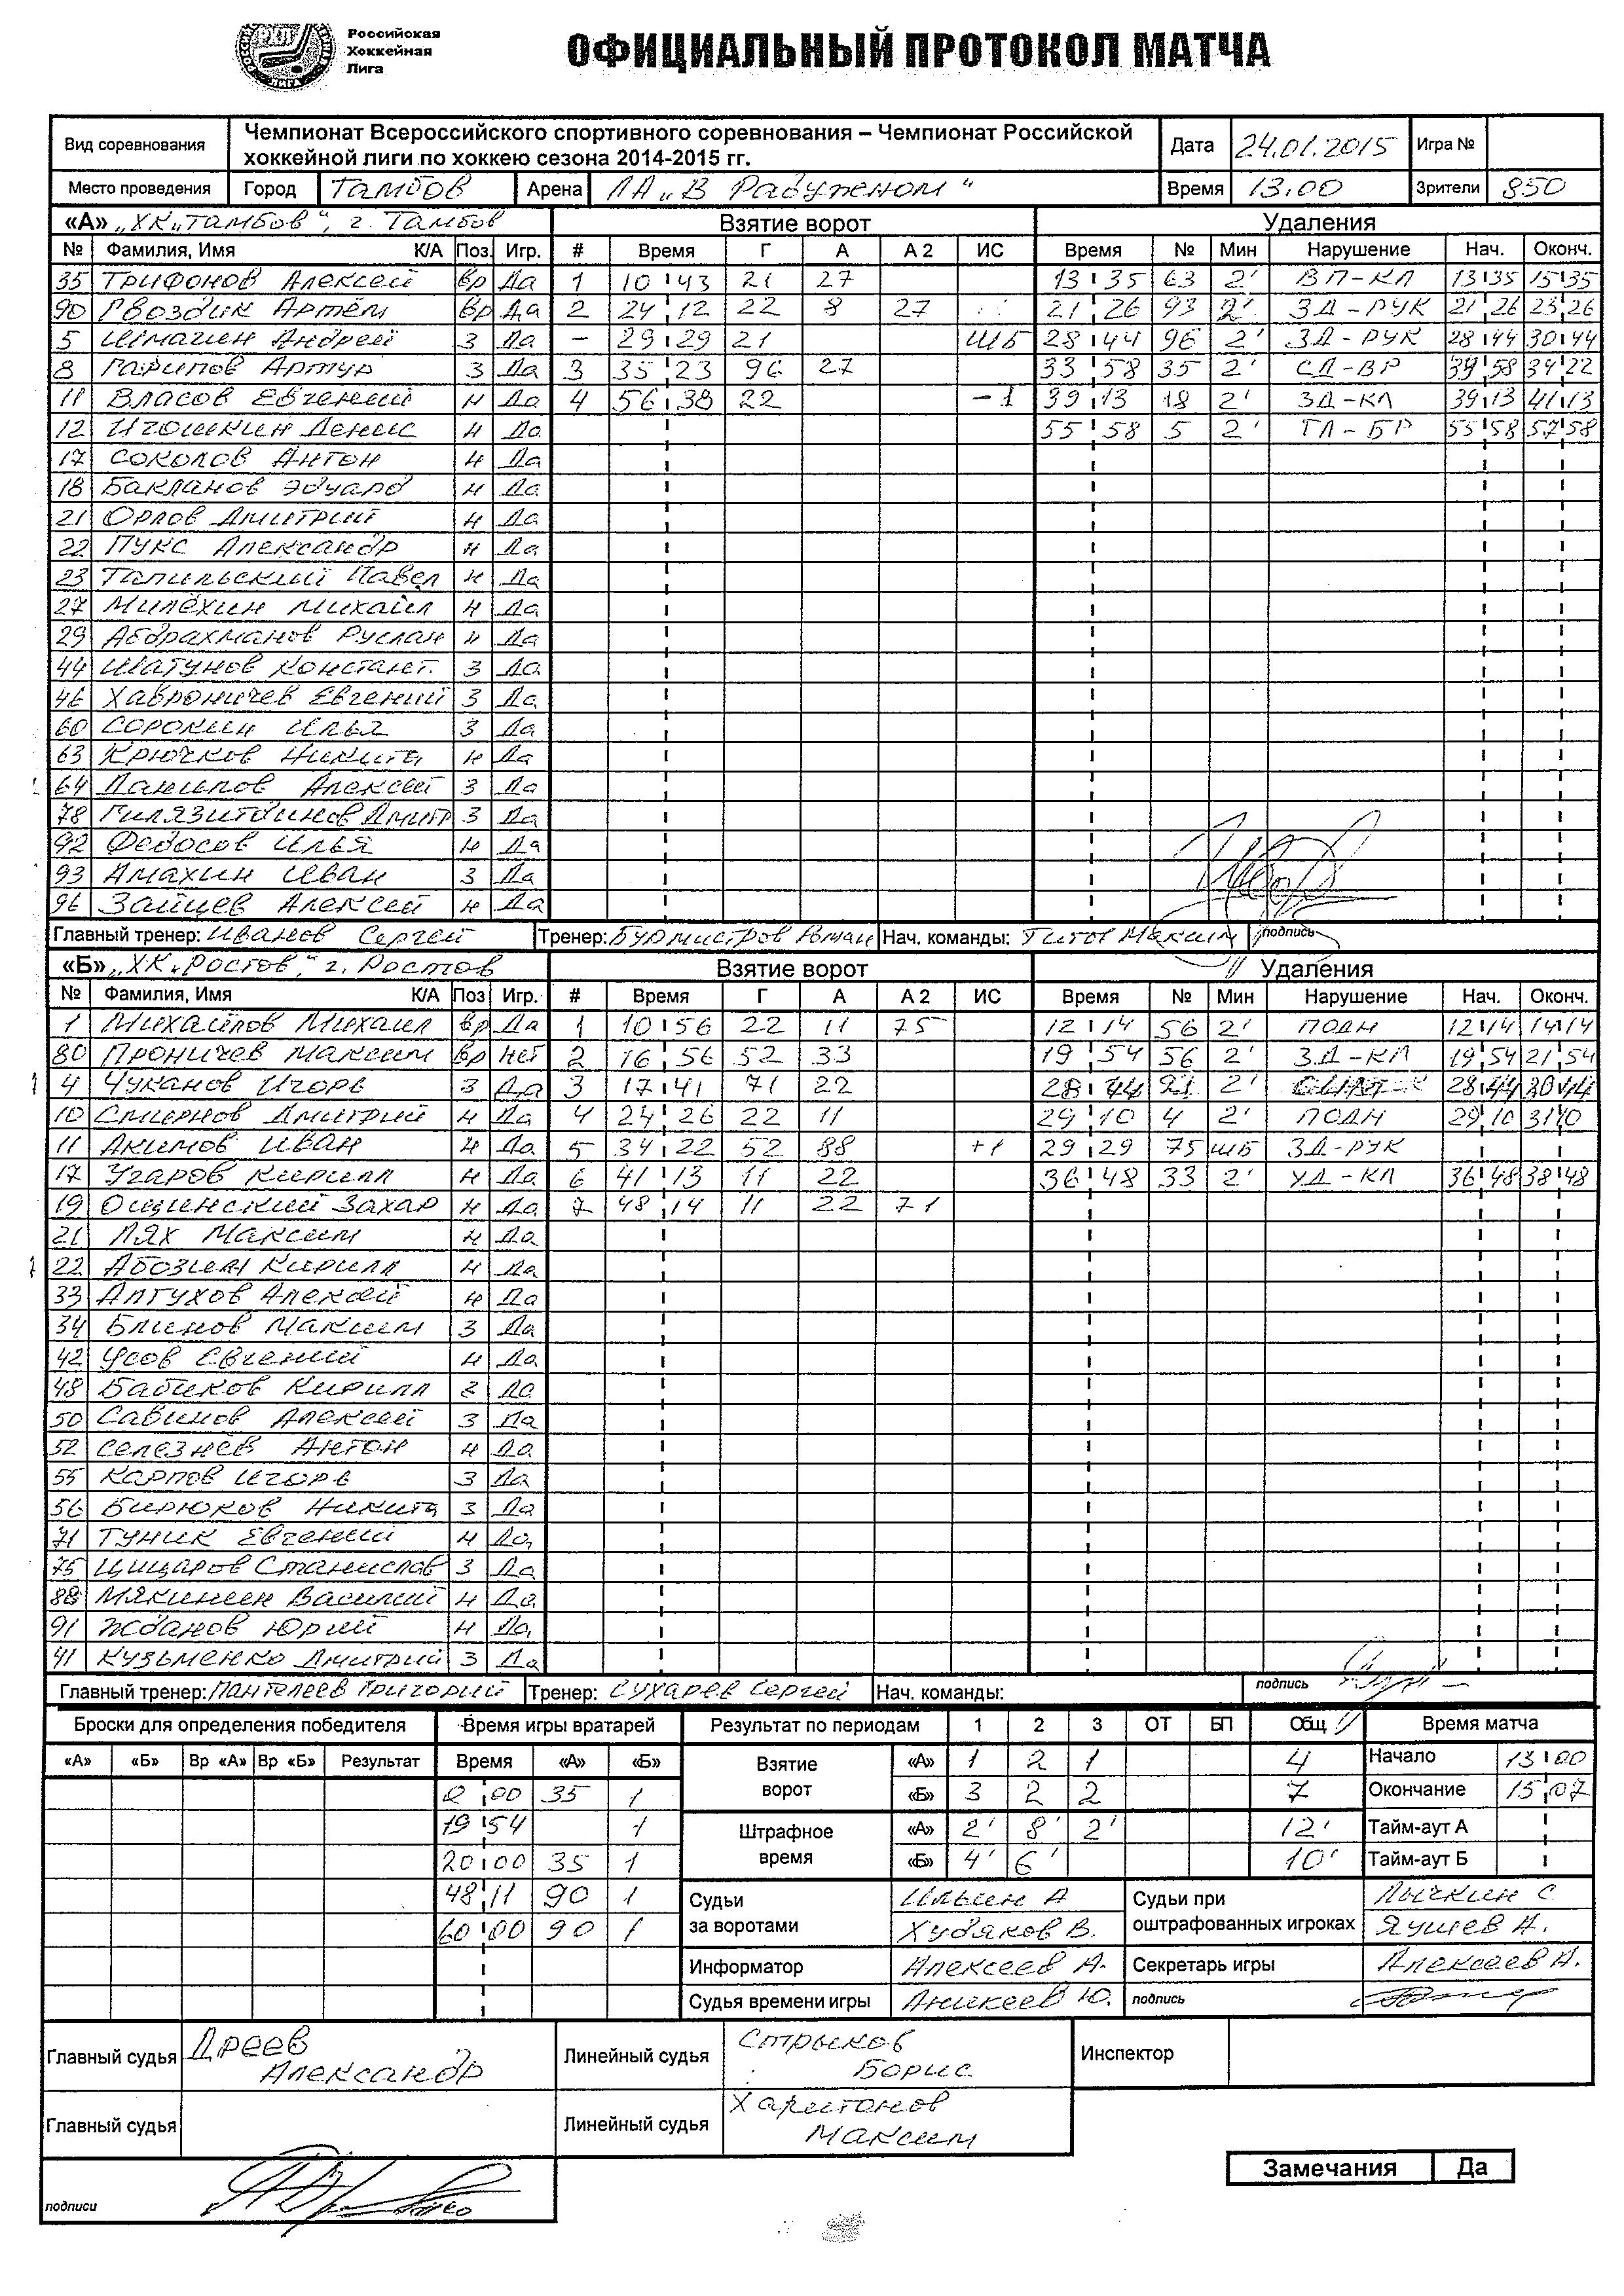 Российская
Хоккейная
Лига
ОФИЦИАЛЬНЫЙ ПРОТОКОЛ МАТЧА
Вид соревнования Чемпионат Всероссийского спортивного соревнования – Чемпионат Российской хоккейной лиги по хоккею сезона 2014-2015 гг. Дата 24.01.2015 Игра №
Место проведения Город Тамбов Арена ЛА „В Радужном“ Время 13.00 Зрители 850
«А» „ХК„Тамбов“, г. Тамбов Взятие ворот Удаления
№ Фамилия, Имя К/А Поз. Игр. # Время Г А А 2 ИС Время № Мин Нарушение Нач. Оконч.
35 Трифонов Алексей вр Да 1 10 43 21 27 13 35 63 2' ВП-КЛ 13 35 15 35
90 Гвоздик Артём вр Да 2 24 12 22 8 27 21 26 93 2' ЗД-РУК 21 26 23 26
5 Шмагин Андрей З Да - 29 29 21 ШБ 28 44 96 2' ЗД-РУК 28 44 30 44
8 Гарипов Артур З Да 3 35 23 96 27 33 58 35 2' СД-ВР 58 34 22
11 Власов Евгений Н Да 4 56 38 22 -1 39 13 18 2' ЗД-КЛ 39 13 41 13
12 Игошкин Денис Н Да 55 58 5 2' ТЛ-БР 55 58 57 58
17 Соколов Антон Н Да
18 Бакланов Эдуард Н Да
21 Орлов Дмитрий Н Да
22 Пукс Александр Н Да
23 Тапильский Павел Н Да
27 Милёхин Михаил Н Да
29 Абдрахманов Руслан Н Да
44 Шатунов Констант. З Да
46 Хаврoничев Евгений З Да
60 Сорокин Илья З Да
63 Крючков Никита Н Да
64 Данилов Алексей З Да
78 Гилязитдинов Дмитр З Да
92 Федосов Илья Н Да
93 Амахин Иван З Да
96 Зайцев Алексей Н Да
Главный тренер: Иванов Сергей Тренер: Бурмистров Роман Нач. команды: Титов Максим подпись
«Б» „ХК„Ростов“, г. Ростов Взятие ворот Удаления
№ Фамилия, Имя К/А Поз Игр. # Время Г А А 2 ИС Время № Мин Нарушение Нач. Оконч.
1 Михайлов Михаил вр Да 1 10 56 22 11 75 12 14 56 2' ПОДН 12 14 14 14
80 Проничев Максим вр Нет 2 16 56 52 33 19 54 56 2' ЗД-КЛ 19 54 21 54
4 Чуканов Игорь З Да 3 17 41 71 22 28 44 21 2' 28 44 30 44
10 Смирнов Дмитрий Н Да 4 24 26 22 11 29 10 4 2' ПОДН 29 10 31 10
11 Акимов Иван Н Да 5 34 22 52 88 +1 29 29 75 ШБ ЗД-РУК
17 Угаров Кирилл Н Да 6 41 13 11 22 36 48 33 2' УД-КЛ 36 48 38 48
19 Ошинский Захар Н Да 7 48 14 11 22 71
21 Лях Максим Н Да
22 Абозин Кирилл Н Да
33 Алтухов Алексей Н Да
34 Блинов Максим З Да
42 Усов Евгений Н Да
48 Бабиков Кирилл З Да
50 Савинов Алексей З Да
52 Селезнёв Антон Н Да
55 Карпов Игорь З Да
56 Бирюков Никита З Да
71 Туник Евгений Н Да
75 Цицаров Станислав З Да
88 Мякинин Василий Н Да
91 Жданов Юрий Н Да
41 Кузьменко Дмитрий З Да
Главный тренер: Пантелеев Григорий Тренер: Сухарев Сергей Нач. команды: подпись
Броски для определения победителя Время игры вратарей Результат по периодам 1 2 3 ОТ БП Общ Время матча
«А» «Б» Вр «А» Вр «Б» Результат Время «А» «Б» Взятие ворот «А» 1 2 1 4 Начало 13 00
0 00 35 1 «Б» 3 2 2 7 Окончание 15 07
19 54 1 Штрафное время «А» 2' 8' 2' 12' Тайм-аут А
20 00 35 1 «Б» 4' 6' 10' Тайм-аут Б
48 11 90 1 Судьи за воротами Ильин А Судьи при оштрафованных игроках Лычкин С.
60 00 90 1 Худяков В. Яушев А.
Информатор Алексеев А. Секретарь игры Алексеев А.
Судья времени игры Аникеев Ю. подпись
Главный судья Дреев Александр Линейный судья Стрыков Борис Инспектор
Главный судья Линейный судья Харитонов Максим
Замечания Да
подписи